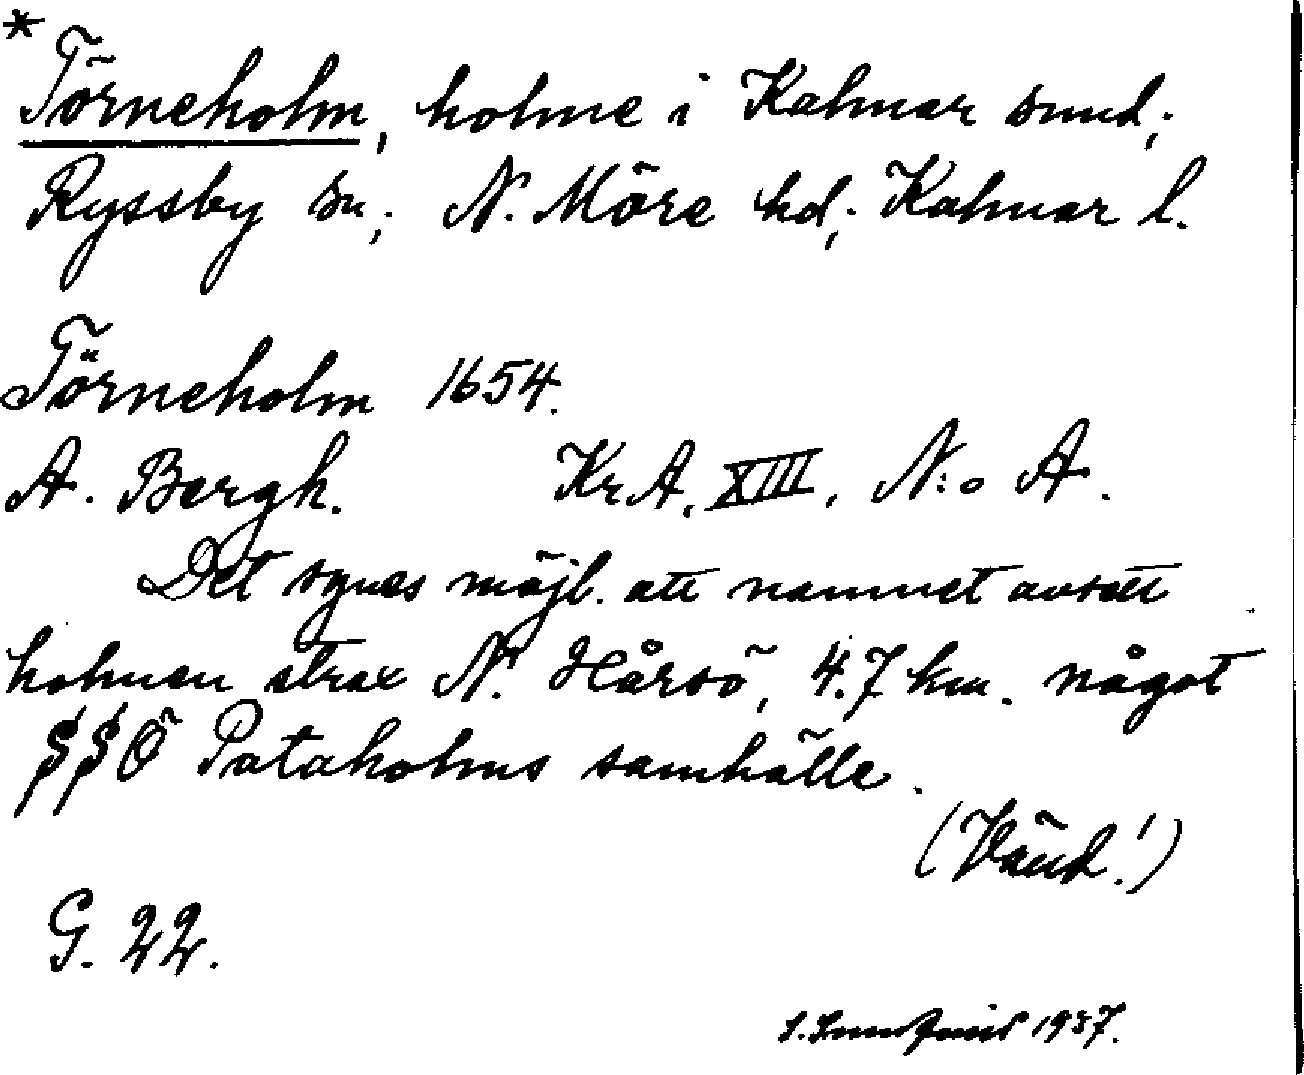 *
Törneholm, holme i Kalmar sund;
Ryssby sn; N. Möre hd; Kalmar l.
Törneholm 1654.
A. Bergh. KrA, XIII, N:o A.
Det synes möjl. att namnet avsett
holmen strax N. Hårsö, 4.7 km. något
SSÖ Pataholms samhälle.
(Vänd!)
G. 22.
1937.